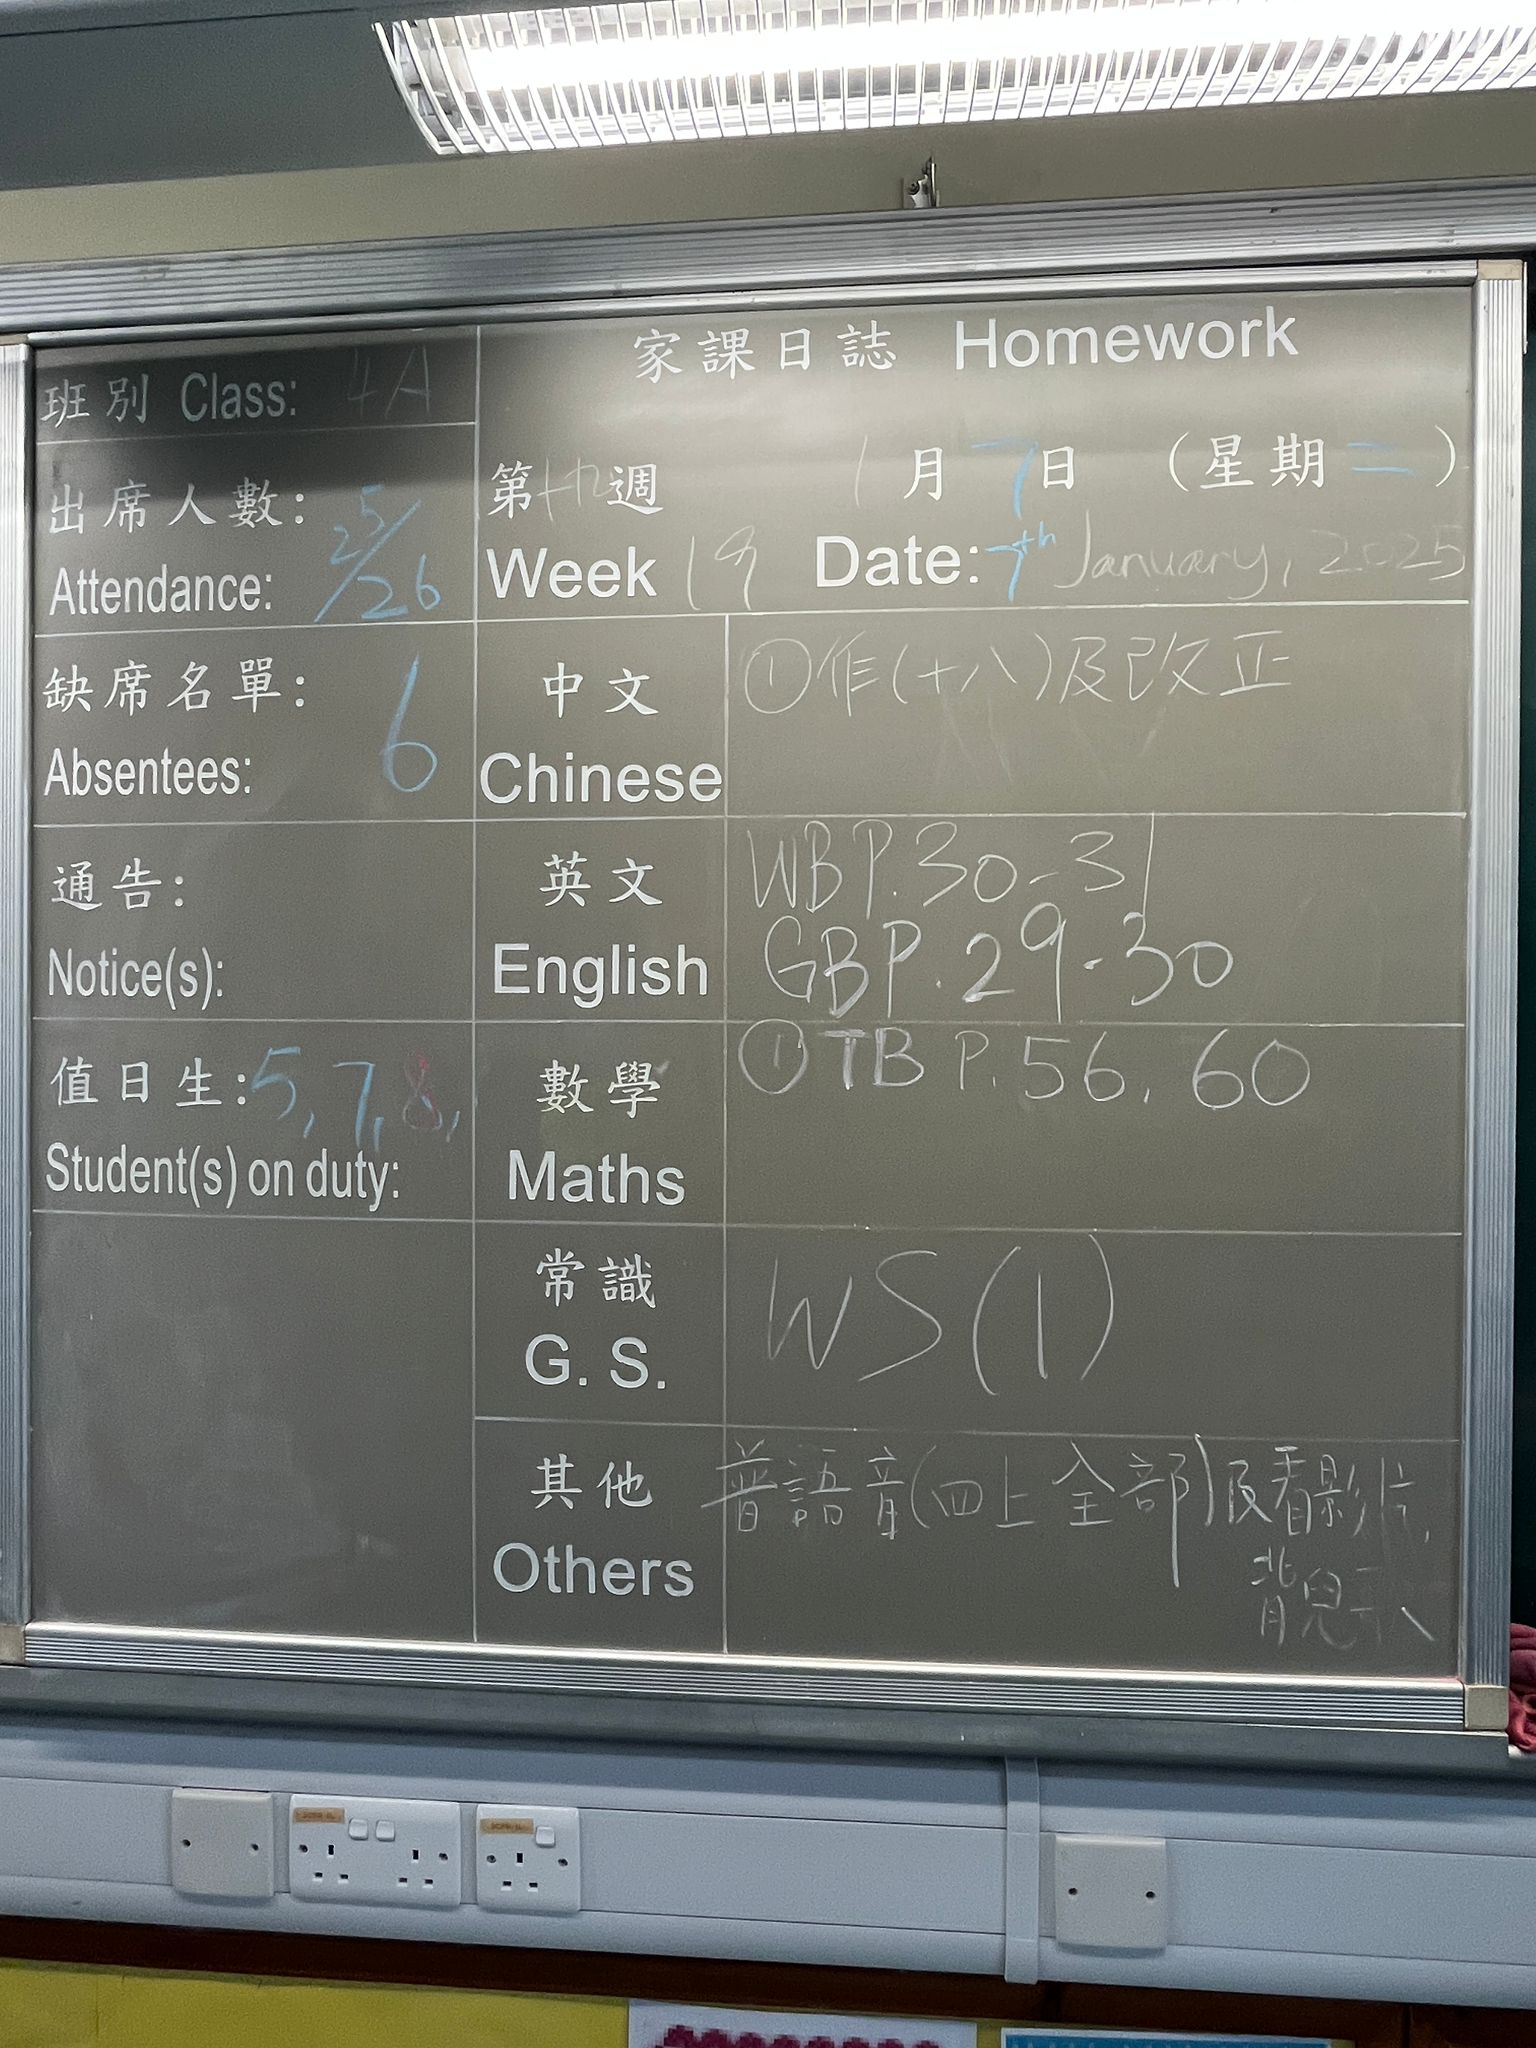 家課日誌 Homework
班別 Class: 4A
出席人數: 25/26
Attendance:
第十九週 1月7日 (星期二)
Week 19 Date: 7th January, 2025
缺席名單: 6
Absentees:
中文 ①作(十八)及改正
Chinese
通告:
Notice(s):
英文 WB P.30-31
English GB P.29-30
值日生: 5, 7, 8,
Student(s) on duty:
數學 ① TB P.56, 60
Maths
常識 WS(1)
G. S.
其他 普語音(四上全部)及看影片,
Others 背兒